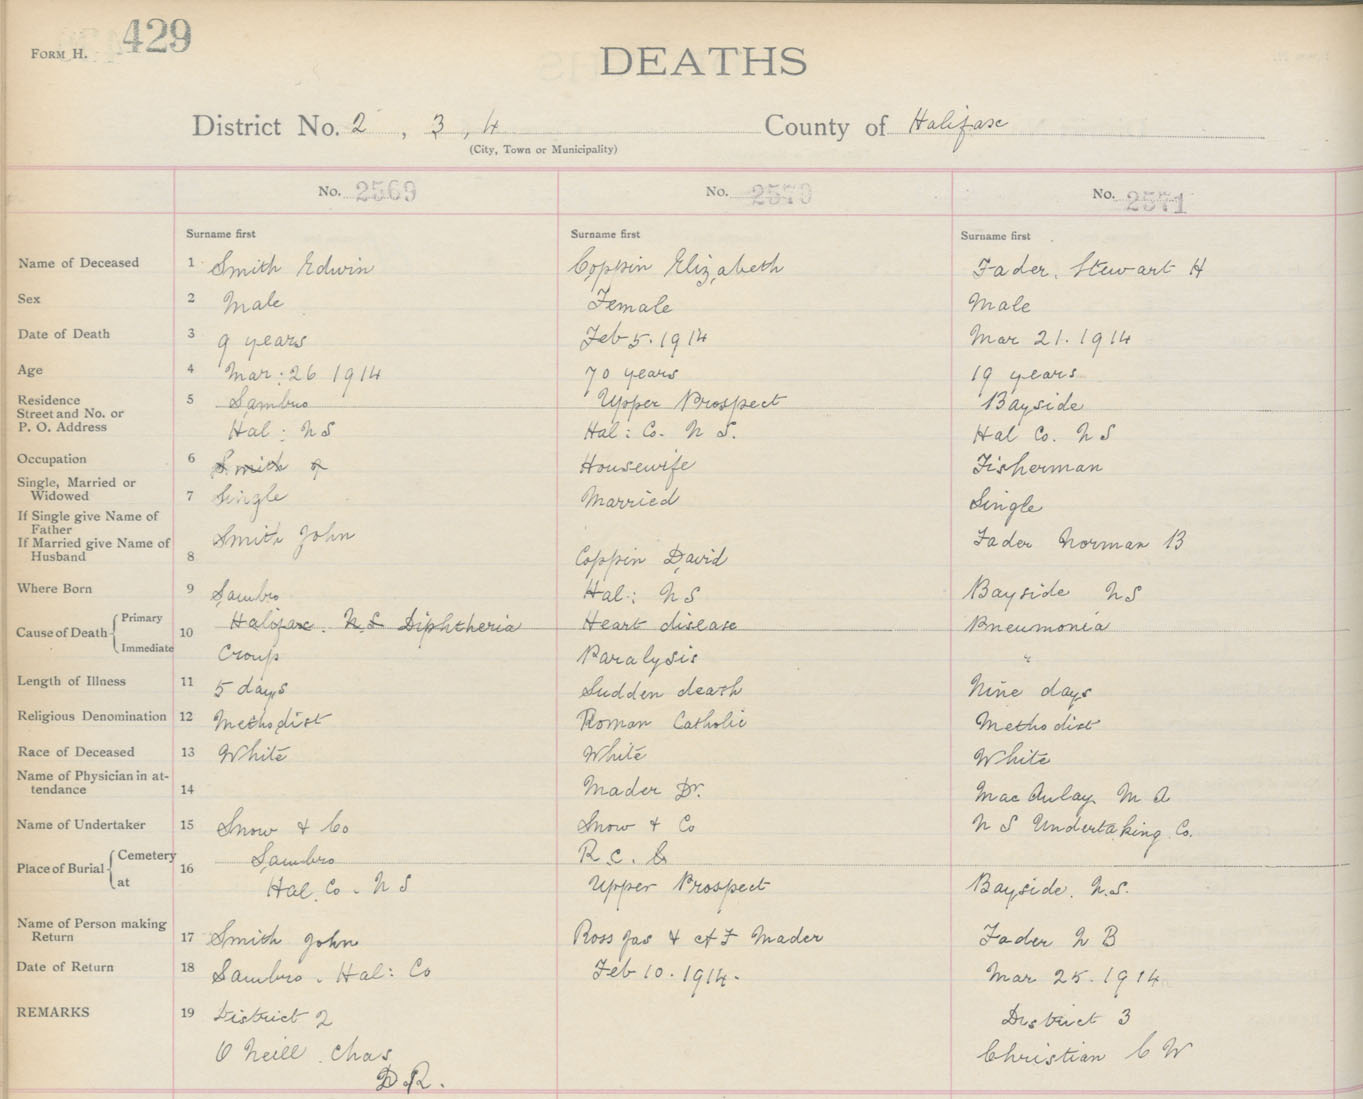 FORM H. 429
DEATHS
District No. 2, 3, 4 County of Halifax
(City, Town or Municipality)
No. 2569 No. 2570 No. 2571
Surname first Surname first Surname first
Name of Deceased 1 Smith Edwin Coppin Elizabeth Fader, Stewart H
Sex 2 Male Female Male
Date of Death 3 9 years Feb 5. 1914 Mar 21. 1914
Age 4 Mar: 26 1914 70 years 19 years
Residence 5 Sambro Upper Prospect Bayside
Street and No. or
P. O. Address Hal: N S Hal: Co. N S. Hal Co. N S
Occupation 6 Smith Housewife Fisherman
Single, Married or
Widowed 7 Single Married Single
If Single give Name of
Father Smith John Fader Norman B
If Married give Name of
Husband 8 Coppin David
Where Born 9 Sambro Hal: N S Bayside N S
Cause of Death Primary 10 Halifax. N.S. Diphtheria Heart disease Pneumonia
Immediate Croup Paralysis "
Length of Illness 11 5 days Sudden death Nine days
Religious Denomination 12 Methodist Roman Catholic Methodist
Race of Deceased 13 White White White
Name of Physician in at-
tendance 14 Mader Dr. MacAulay M A
Name of Undertaker 15 Snow & Co Snow & Co N S Undertaking Co.
Place of Burial Cemetery 16 Sambro R.C.
at Hal. Co. N S Upper Prospect Bayside. N.S.
Name of Person making
Return 17 Smith John Ross Jas & A F Mader Fader N B
Date of Return 18 Sambro. Hal: Co Feb 10. 1914. Mar 25. 1914
REMARKS 19 District 2 District 3
O'Neill. Chas Christian C W
D.R.